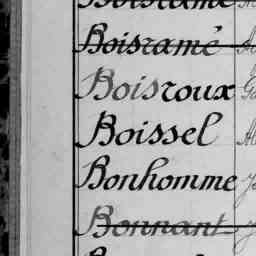 Boisramé
Boisroux
Boissel
Bonhomme
Bonnant